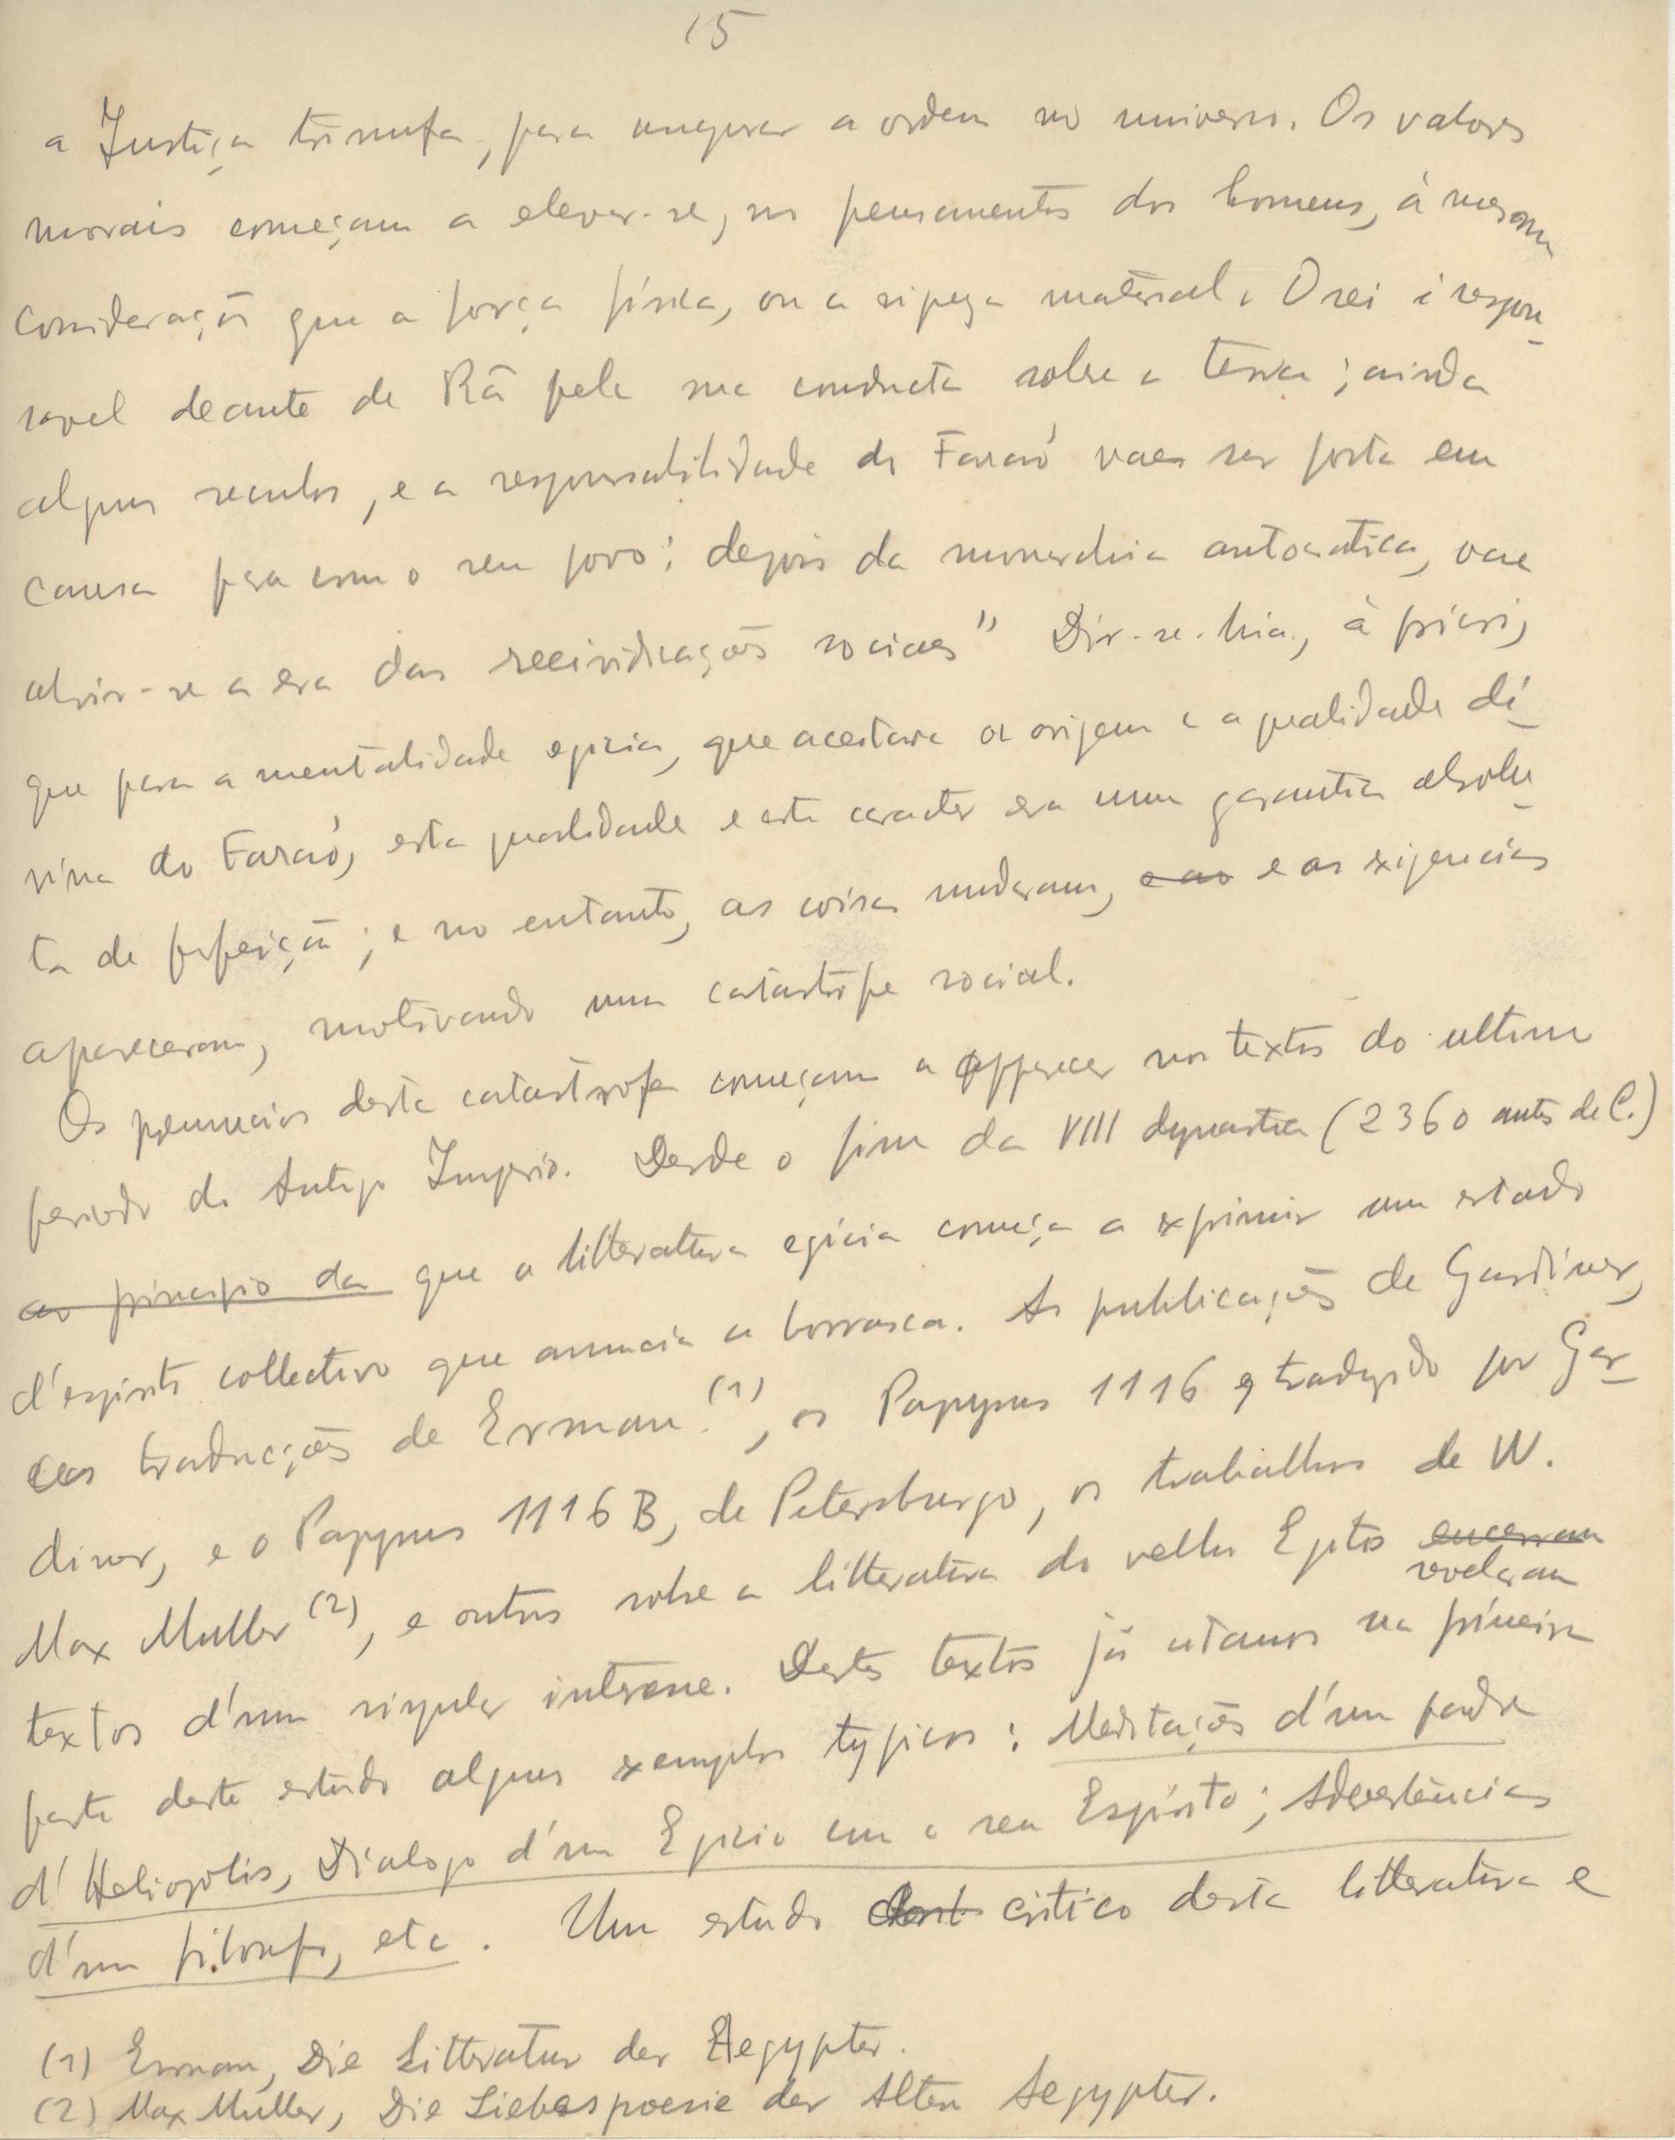 15
a Justiça triunfa, para assegurar a ordem no universo. Os valores
morais começam a elevar-se, no pensamento dos homens, à mesma
consideração que a força física, ou a riqueza material. O rei é respon-
savel deante de Râ pela sua conducta sobre a terra; ainda
alguns seculos, e a responsabilidade do Faraó vae ser posta em
causa para com o seu povo: depois da monarchia autocratica, vae
abrir-se a era das reeividicações sociaes" Dir-se-hia, à priori,
que para a mentalidade egicia, que aceitava a origem e a qualidade di-
vina do Faraó, esta qualidade e este caracter era uma garantia absolu-
ta de perfeição; e no entanto, as coisas mudaram, e as e as exigencias
apareceram, motivando uma catastrofe social.
Os prenuncios desta catastrofe começam a apparecer nos textos do ultimo
periodo do Antigo Imperio. Desde o fim da VIII dynastia (2360 antes de C.)
ao principio da que a litteratura egicia começa a exprimir um estado
d'espirito collectivo que anuncia a borrasca. As publicações de Gardiner,
as traducções de Erman (1), os Papyrus 1116 traduzido por Gar-
diner, e o Papyrus 1116 B, de Petersburgo, os trabalhos de W.
Max Muller (2), e outros sobre a litteratura do velho Egito encerram
revelaram
textos d'um singular interesse. Destes textos já citamos na primeira
parte deste estudo alguns exemplos typicos: Meditações d'um padre
d'Heliopolis, Dialogo d'um Egicio com o seu Espirito; Advertências
d'um filosofo, etc. Um estudo critico desta litteratura e
(1) Erman, Die Litteratur der Aegypter.
(2) Max Muller, Die Liebespoesie der Alten Aegypter.